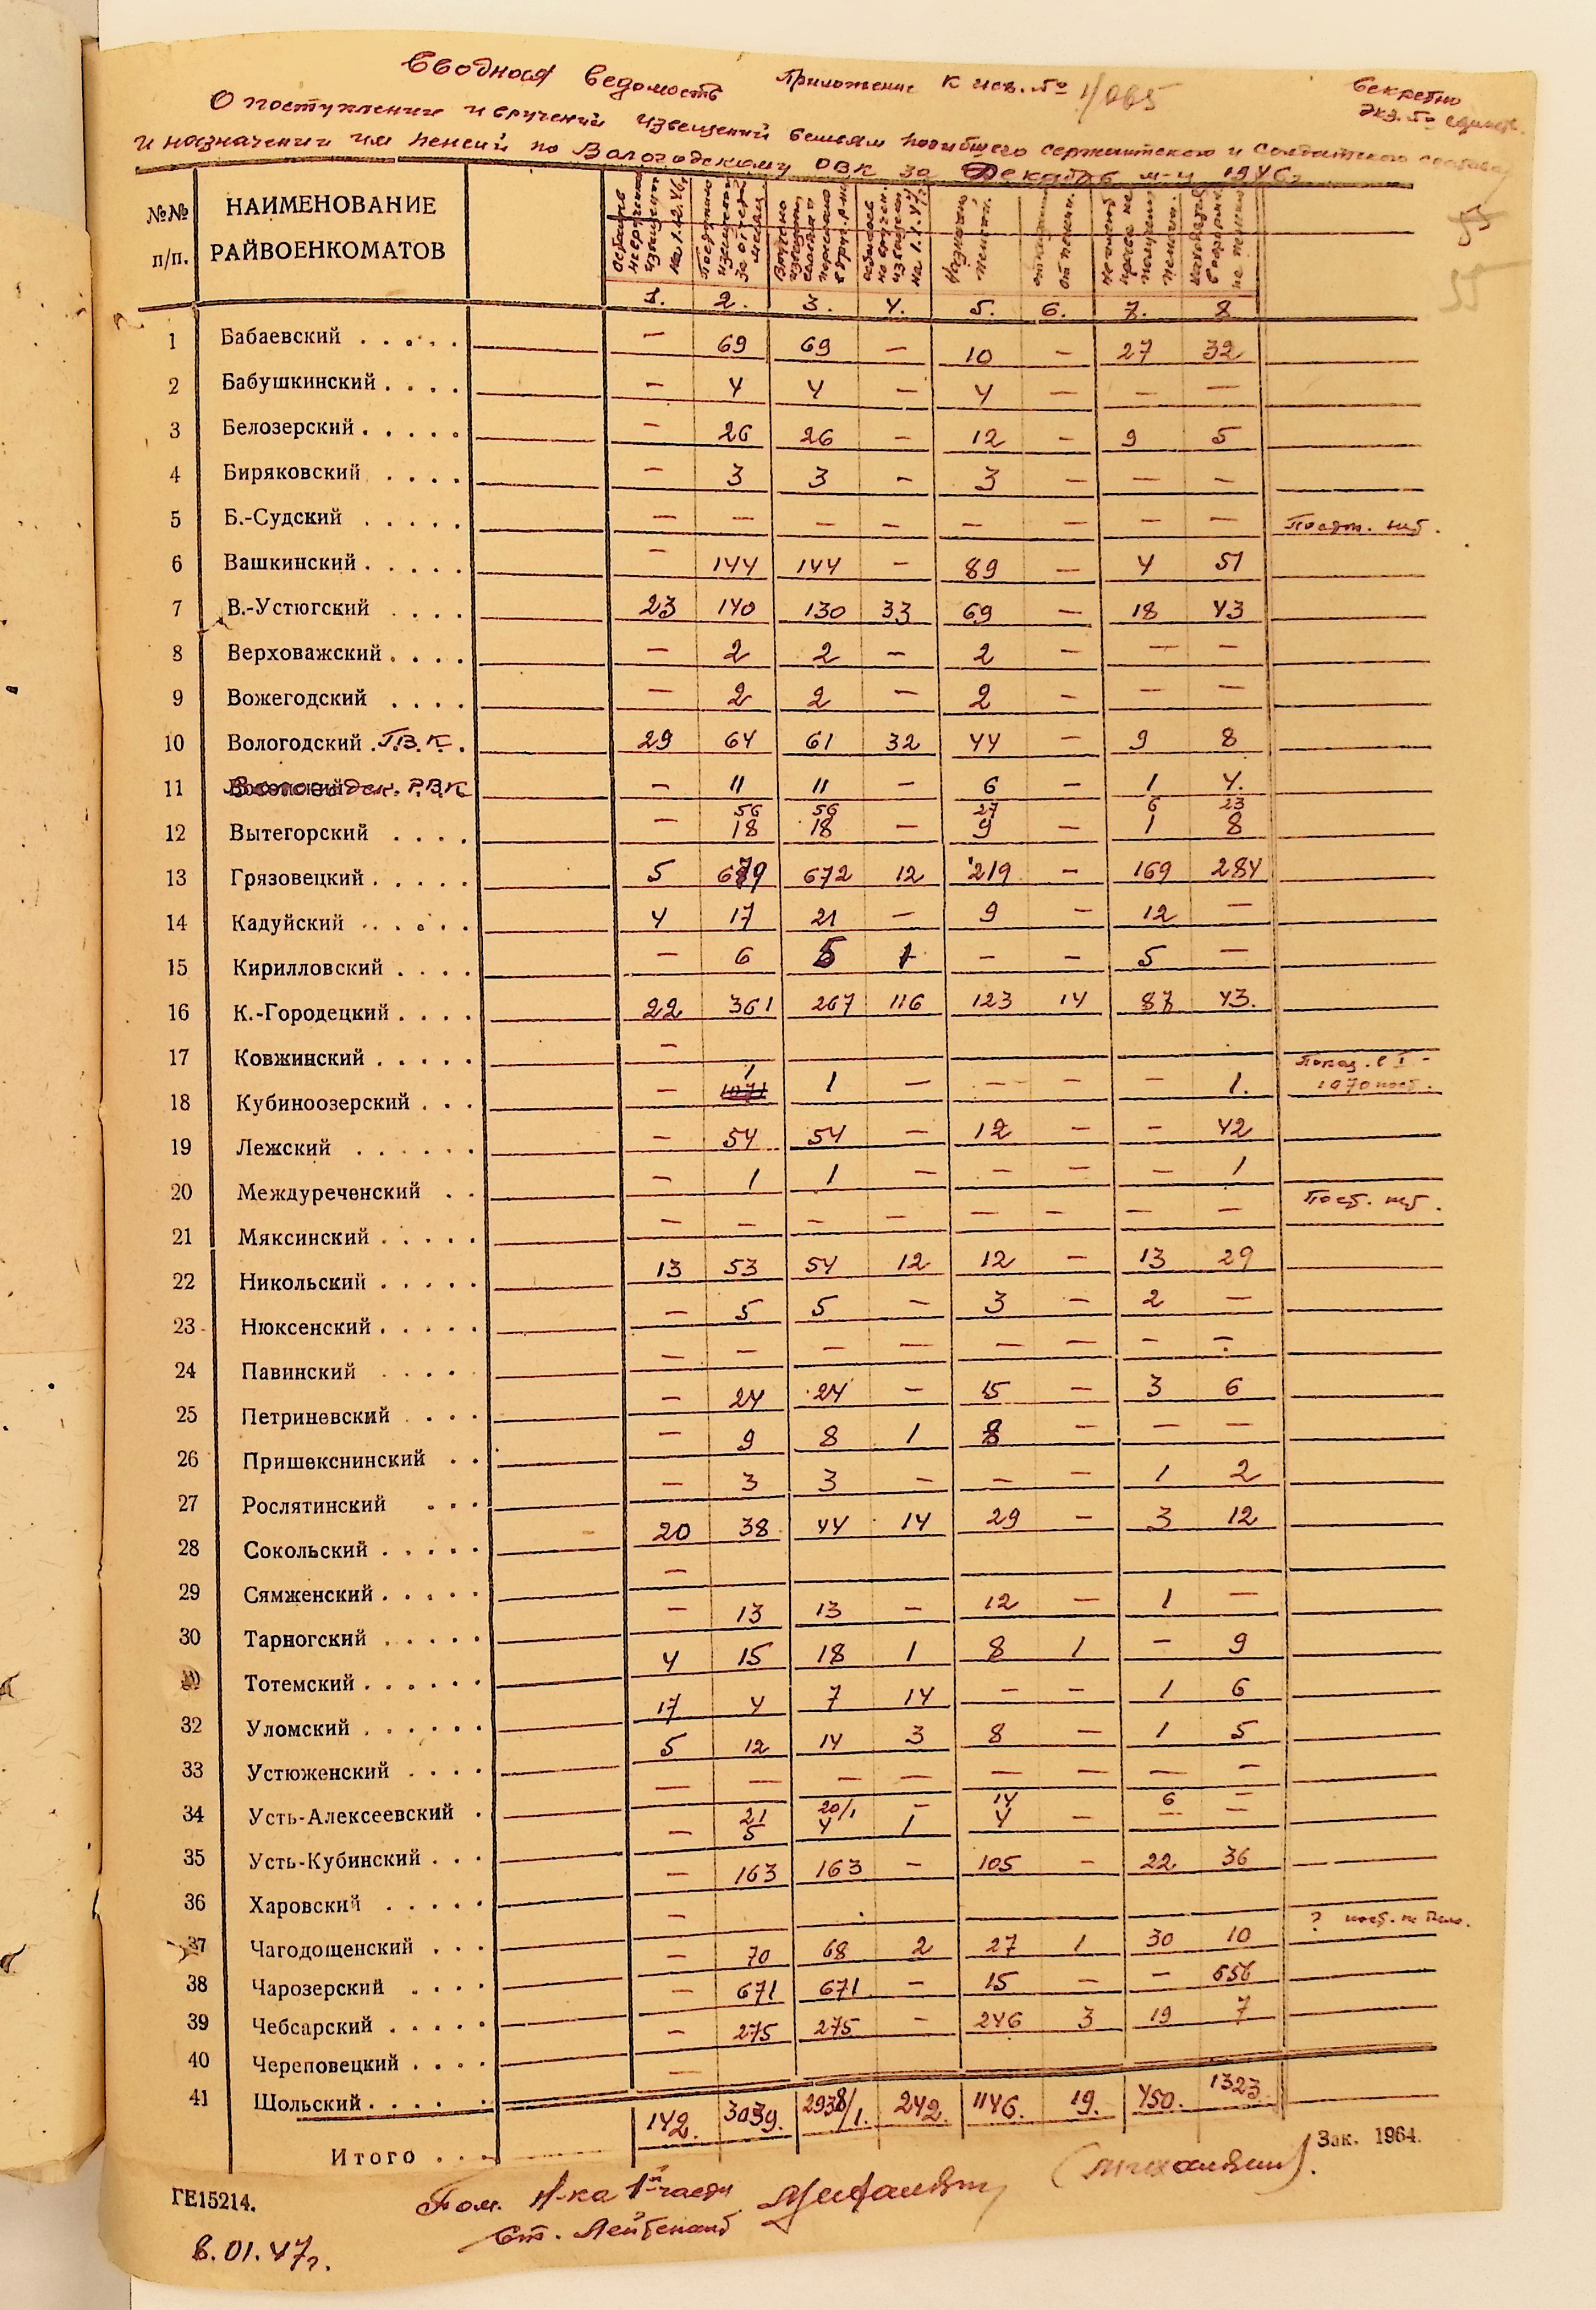 Сводная ведомость Приложение к исх. № 1/065
Секретно
Экз. № единств.
О поступлении и вручении извещений семьям погибшего сержантского и солдатского состава
и назначении им пенсий по Вологодскому ОВК за Декабрь м-ц 1946г.
№№ п/п. НАИМЕНОВАНИЕ РАЙВОЕНКОМАТОВ
1. 2. 3. 4. 5. 6. 7. 8
1 Бабаевский . . . . . — 69 69 — 10 — 27 32
2 Бабушкинский . . . . — 4 4 — 4 — — —
3 Белозерский . . . . . — 26 26 — 12 — 9 5
4 Биряковский . . . . — 3 3 — 3 — — —
5 Б.-Судский . . . . . — — — — — — — —
6 Вашкинский . . . . . — 144 144 — 89 — 4 51
7 В.-Устюгский . . . . 23 140 130 33 69 — 18 43
8 Верховажский . . . . — 2 2 — 2 — — —
9 Вожегодский . . . . — 2 2 — 2 — — —
10 Вологодский Г.В.К. 29 64 61 32 44 — 9 8
11 Вологодск. Р.В.К. — 11 11 — 6 — 1 4.
56 56 27 6 23
12 Вытегорский . . . . — 18 18 — 9 — 1 8
13 Грязовецкий . . . . . 5 679 672 12 219 — 169 284
14 Кадуйский . . . . . . 4 17 21 — 9 — 12 —
15 Кирилловский . . . . — 6 5 1 — — 5 —
16 К.-Городецкий . . . . 22 361 267 116 123 14 87 43.
17 Ковжинский . . . . . —
18 Кубиноозерский . . . — 1 1 — — — — 1.
1070 пост.
19 Лежский . . . . . . — 54 54 — 12 — — 42
20 Междуреченский . . — 1 1 — — — — 1
21 Мяксинский . . . . . — — — — — — — —
22 Никольский . . . . . 13 53 54 12 12 — 13 29
23 Нюксенский . . . . . — 5 5 — 3 — 2 —
24 Павинский . . . . — — — — — — — —
25 Петриневский . . . . — 24 24 — 15 — 3 6
26 Пришекснинский . . — 9 8 1 8 — — —
27 Рослятинский . . . — 3 3 — — — 1 2
28 Сокольский . . . . . 20 38 44 14 29 — 3 12
29 Сямженский . . . . . —
30 Тарногский . . . . . — 13 13 — 12 — 1 —
Тотемский . . . . . . 4 15 18 1 8 1 — 9
32 Уломский . . . . . . 17 4 7 14 — — 1 6
33 Устюженский . . . . 5 12 14 3 8 — 1 5
34 Усть-Алексеевский . — — — — — — — —
21 20/1 — 14 6 —
35 Усть-Кубинский . . . — 5 4 1 4 — — —
36 Харовский . . . . . — 163 163 — 105 — 22 36
37 Чагодощенский . . . —
38 Чарозерский . . . . — 70 68 2 27 1 30 10
39 Чебсарский . . . . . — 671 671 — 15 — — 656
40 Череповецкий . . . . — 275 275 — 246 3 19 7
41 Шольский . . . . . —
Итого . . . 142. 3039. 2938/1. 242. 1146. 19. 450. 1323
Зак. 1964.
ГЕ15214.
Пом. Н-ка 1й части
Ст. Лейтенант
8.01.47г.